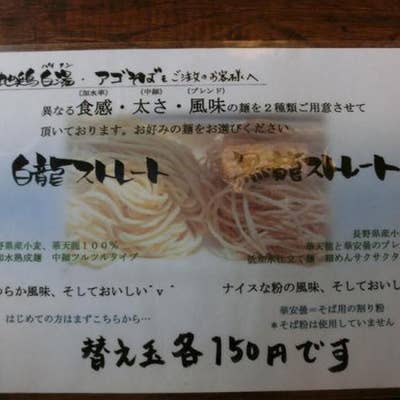 地鶏白湯・アゴそばをご注文のお客様へ
パイ タン
(加水率) (中細) (ブレンド)
異なる食感・太さ・風味の麺を2種類ご用意させて
頂いております。お好みの麺をお選びください
白龍ストレート
黒龍ストレート
野県産小麦、華天龍100%
加水熟成麺 中細ツルツルタイプ
らか風味、そしておいしい˅v˅
はじめての方はまずこちらから…
長野県産小
華天龍と華安曇のブレ
低加水仕立て麺 細めんサクサクタ
ナイスな粉の風味、そしておいし
華安曇=そば用の割り粉
*そば粉は使用していません
替え玉各150円です